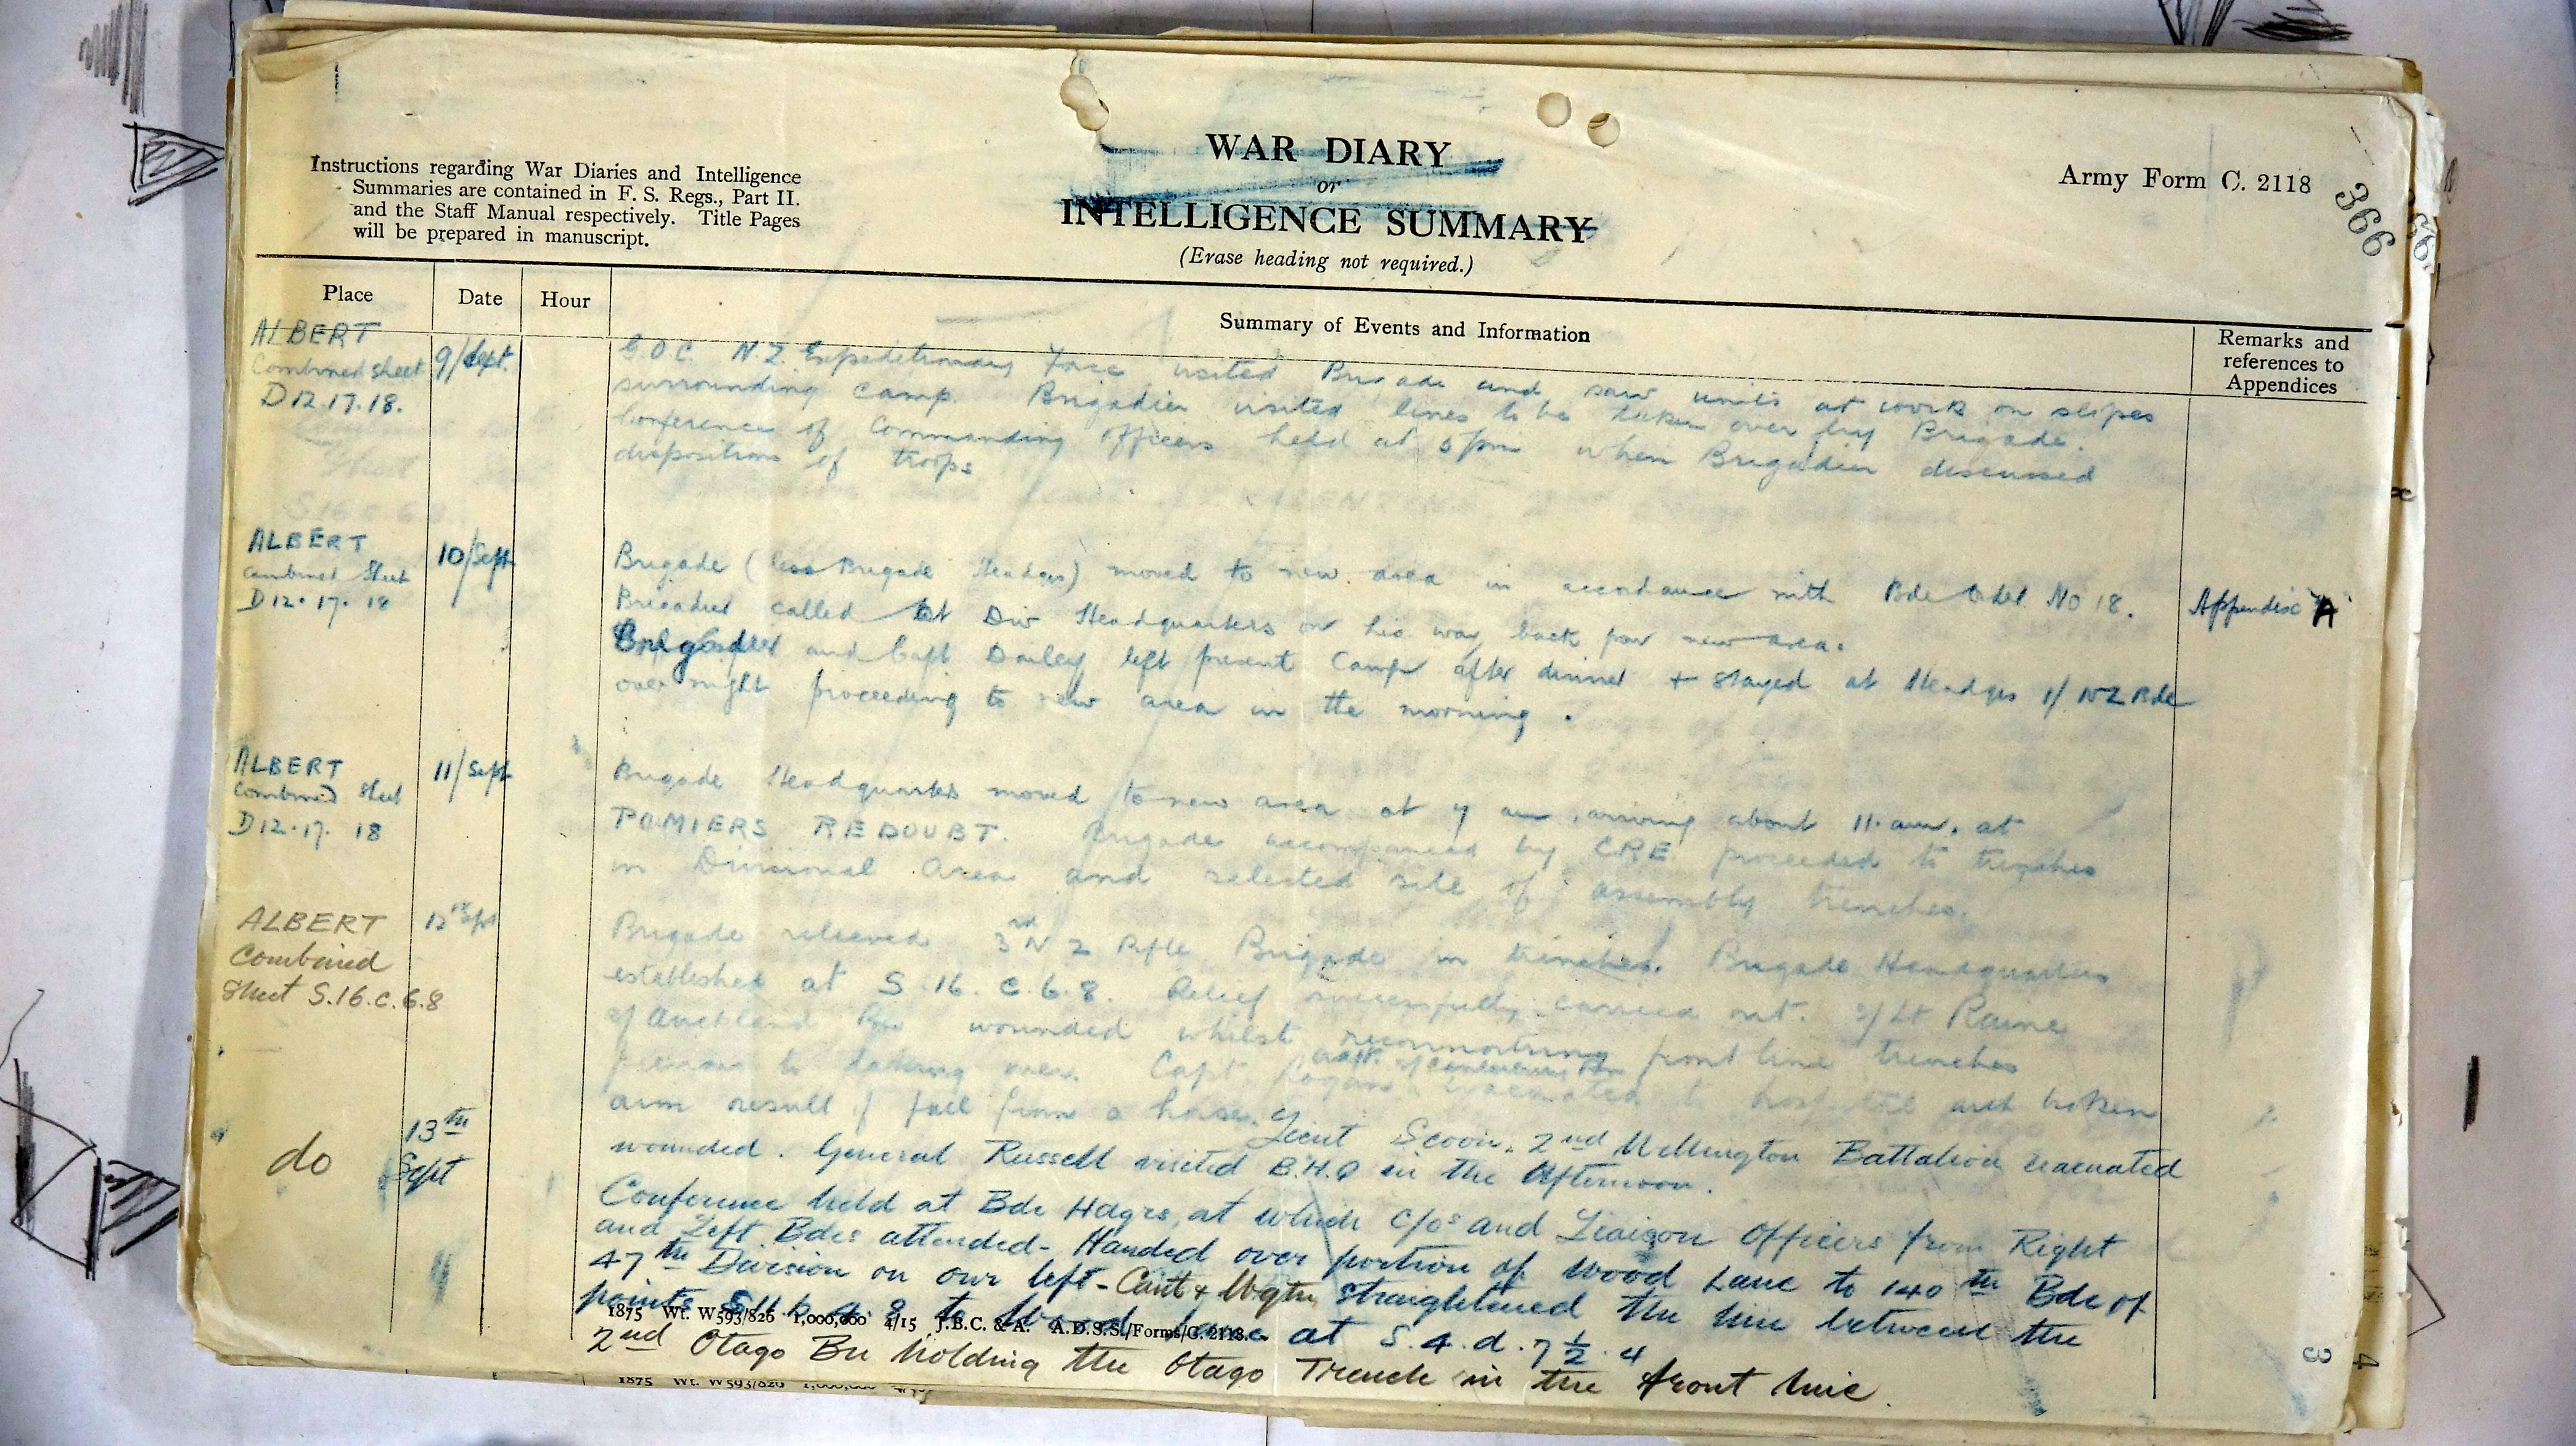 Instructions regarding War Diaries and Intelligence
Summaries are contained in F. S. Regs., Part II.
and the Staff Manual respectively. Title Pages
will be prepared in manuscript.
WAR DIARY
or
INTELLIGENCE SUMMARY
(Erase heading not required.)
Army Form C. 2118
366
Place
Date
Hour
Summary of Events and Information
Remarks and
references to
Appendices
ALBERT
Combined sheet
D 12.17.18.
9/Sept.
G.O.C. N.Z. Expeditionary Force visited Brigade and saw units at work on slopes
surrounding camp. Brigadier visited lines to be taken over by Brigade.
Conference of Commanding Officers held at 5 pm when Brigadier discussed
dispositions of troops
ALBERT
Combined Sheet
D 12.17.18
10/Sept
Brigade (less Brigade Headqrs) moved to new area in accordance with Bde Order No 18.
Appendix "A"
Brigadier called at Div Headquarters on his way back from new area.
Brigadier and Capt Dailey left present Camp after dinner + stayed at Headqrs 1/ NZ Bde
over night proceeding to new area in the morning.
ALBERT
Combined Sheet
D 12.17. 18
11/Sept
Brigade Headquarters moved to new area at 9 am, arriving about 11.am. at
POMIERS REDOUBT. Brigade accompanied by CRE proceeded to trenches
in Divisional Area and selected site of assembly trenches.
ALBERT
Combined
Sheet S.16.c.6.8
12th Sept
Brigade relieved 3rd N Z Rifle Brigade in trenches. Brigade Headquarters
established at S.16.c.6.8. Relief successfully carried out. 2/Lt Raine
2/Auckland Bn wounded whilst reconnoitring front line trenches
previous to taking over. Capt. evacuated to hospital with broken
arm result of fall from a horse.
do
13th
Sept
Lieut 2nd Wellington Battalion evacuated
wounded. General Russell visited B.H.Q in the Afternoon.
Conference held at Bde Hdqrs, at which C/Os and Liaison Officers from Right
and Left Bdes attended- Handed over portion of Wood Lane to 140th Bde of
47th Division on our left - Cant & Wgtn straightened the line between the
points S.11.b.4.8 to Wood Lane at S.4.d.7½.4
1875 Wt. W593/826 1,000,000 4/15 J.B.C. & A. A.D.S.S./Forms/C. 2118.
2nd Otago Bn holding the Otago Trench in the front line.
1875 Wt. W593/826 1,000,000